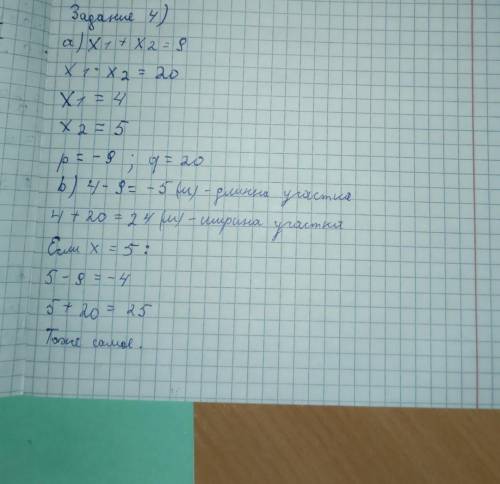 Задание 4)
а) x1 + x2 = 9
x1 · x2 = 20
x1 = 4
x2 = 5
p = -9 ; q = 20
b) 4 - 9 = -5 (м) - длинна участка
4 + 20 = 24 (м) - ширина участка
Если x = 5 :
5 - 9 = -4
5 + 20 = 25
Тоже самое.